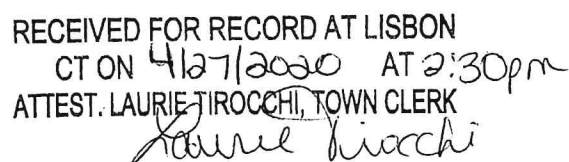 RECEIVED FOR RECORD AT LISBON
CT ON 4/27/2020 AT 2:30pm
ATTEST. LAURIE TIROCCHI, TOWN CLERK
Laurie Tirocchi